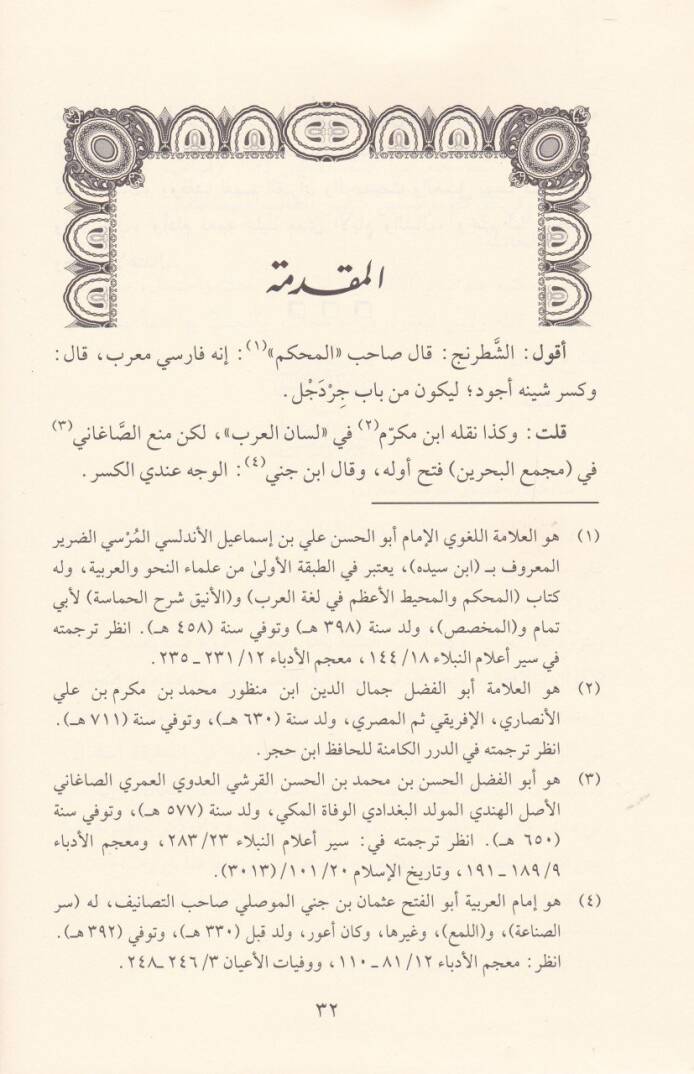 المقدمة
أقول: الشَّطرنج: قال صاحب «المحكم»(١): إنه فارسي معرب، قال:
وكسر شينه أجود؛ ليكون من باب جِرْدَحْل.
قلت: وكذا نقله ابن مكرّم(٢) في «لسان العرب»، لكن منع الصَّاغاني(٣)
في (مجمع البحرين) فتح أوله، وقال ابن جني(٤): الوجه عندي الكسر.
(١) هو العلامة اللغوي الإمام أبو الحسن علي بن إسماعيل الأندلسي المُرْسي الضرير
المعروف بـ (ابن سيده)، يعتبر في الطبقة الأولىٰ من علماء النحو والعربية، وله
كتاب (المحكم والمحيط الأعظم في لغة العرب) و(الأنيق شرح الحماسة) لأبي
تمام و(المخصص)، ولد سنة (٣٩٨ هـ) وتوفي سنة (٤٥٨ هـ). انظر ترجمته
في سير أعلام النبلاء ١٤٤/١٨، معجم الأدباء ٢٣١/١٢ ـ ٢٣٥.
(٢) هو العلامة أبو الفضل جمال الدين ابن منظور محمد بن مكرم بن علي
الأنصاري، الإفريقي ثم المصري، ولد سنة (٦٣٠ هـ)، وتوفي سنة (٧١١ هـ).
انظر ترجمته في الدرر الكامنة للحافظ ابن حجر.
(٣) هو أبو الفضل الحسن بن محمد بن الحسن القرشي العدوي العمري الصاغاني
الأصل الهندي المولد البغدادي الوفاة المكي، ولد سنة (٥٧٧ هـ)، وتوفي سنة
(٦٥٠ هـ). انظر ترجمته في: سير أعلام النبلاء ٢٨٣/٢٣، ومعجم الأدباء
١٨٩/٩ ـ ١٩١، وتاريخ الإسلام ١٠١/٢٠/(٣٠١٣).
(٤) هو إمام العربية أبو الفتح عثمان بن جني الموصلي صاحب التصانيف، له (سر
الصناعة)، و(اللمع)، وغيرها، وكان أعور، ولد قبل (٣٣٠ هـ)، وتوفي (٣٩٢ هـ).
انظر: معجم الأدباء ٨١/١٢ ـ ١١٠، ووفيات الأعيان ٢٤٦/٣ ـ ٢٤٨.
٣٢